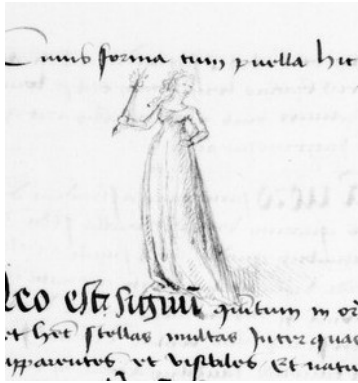 Cuius forma cum puella hic
Leo est signū quintum in or
et het stellas multas Inter quas
apparentes et visibiles Et natu